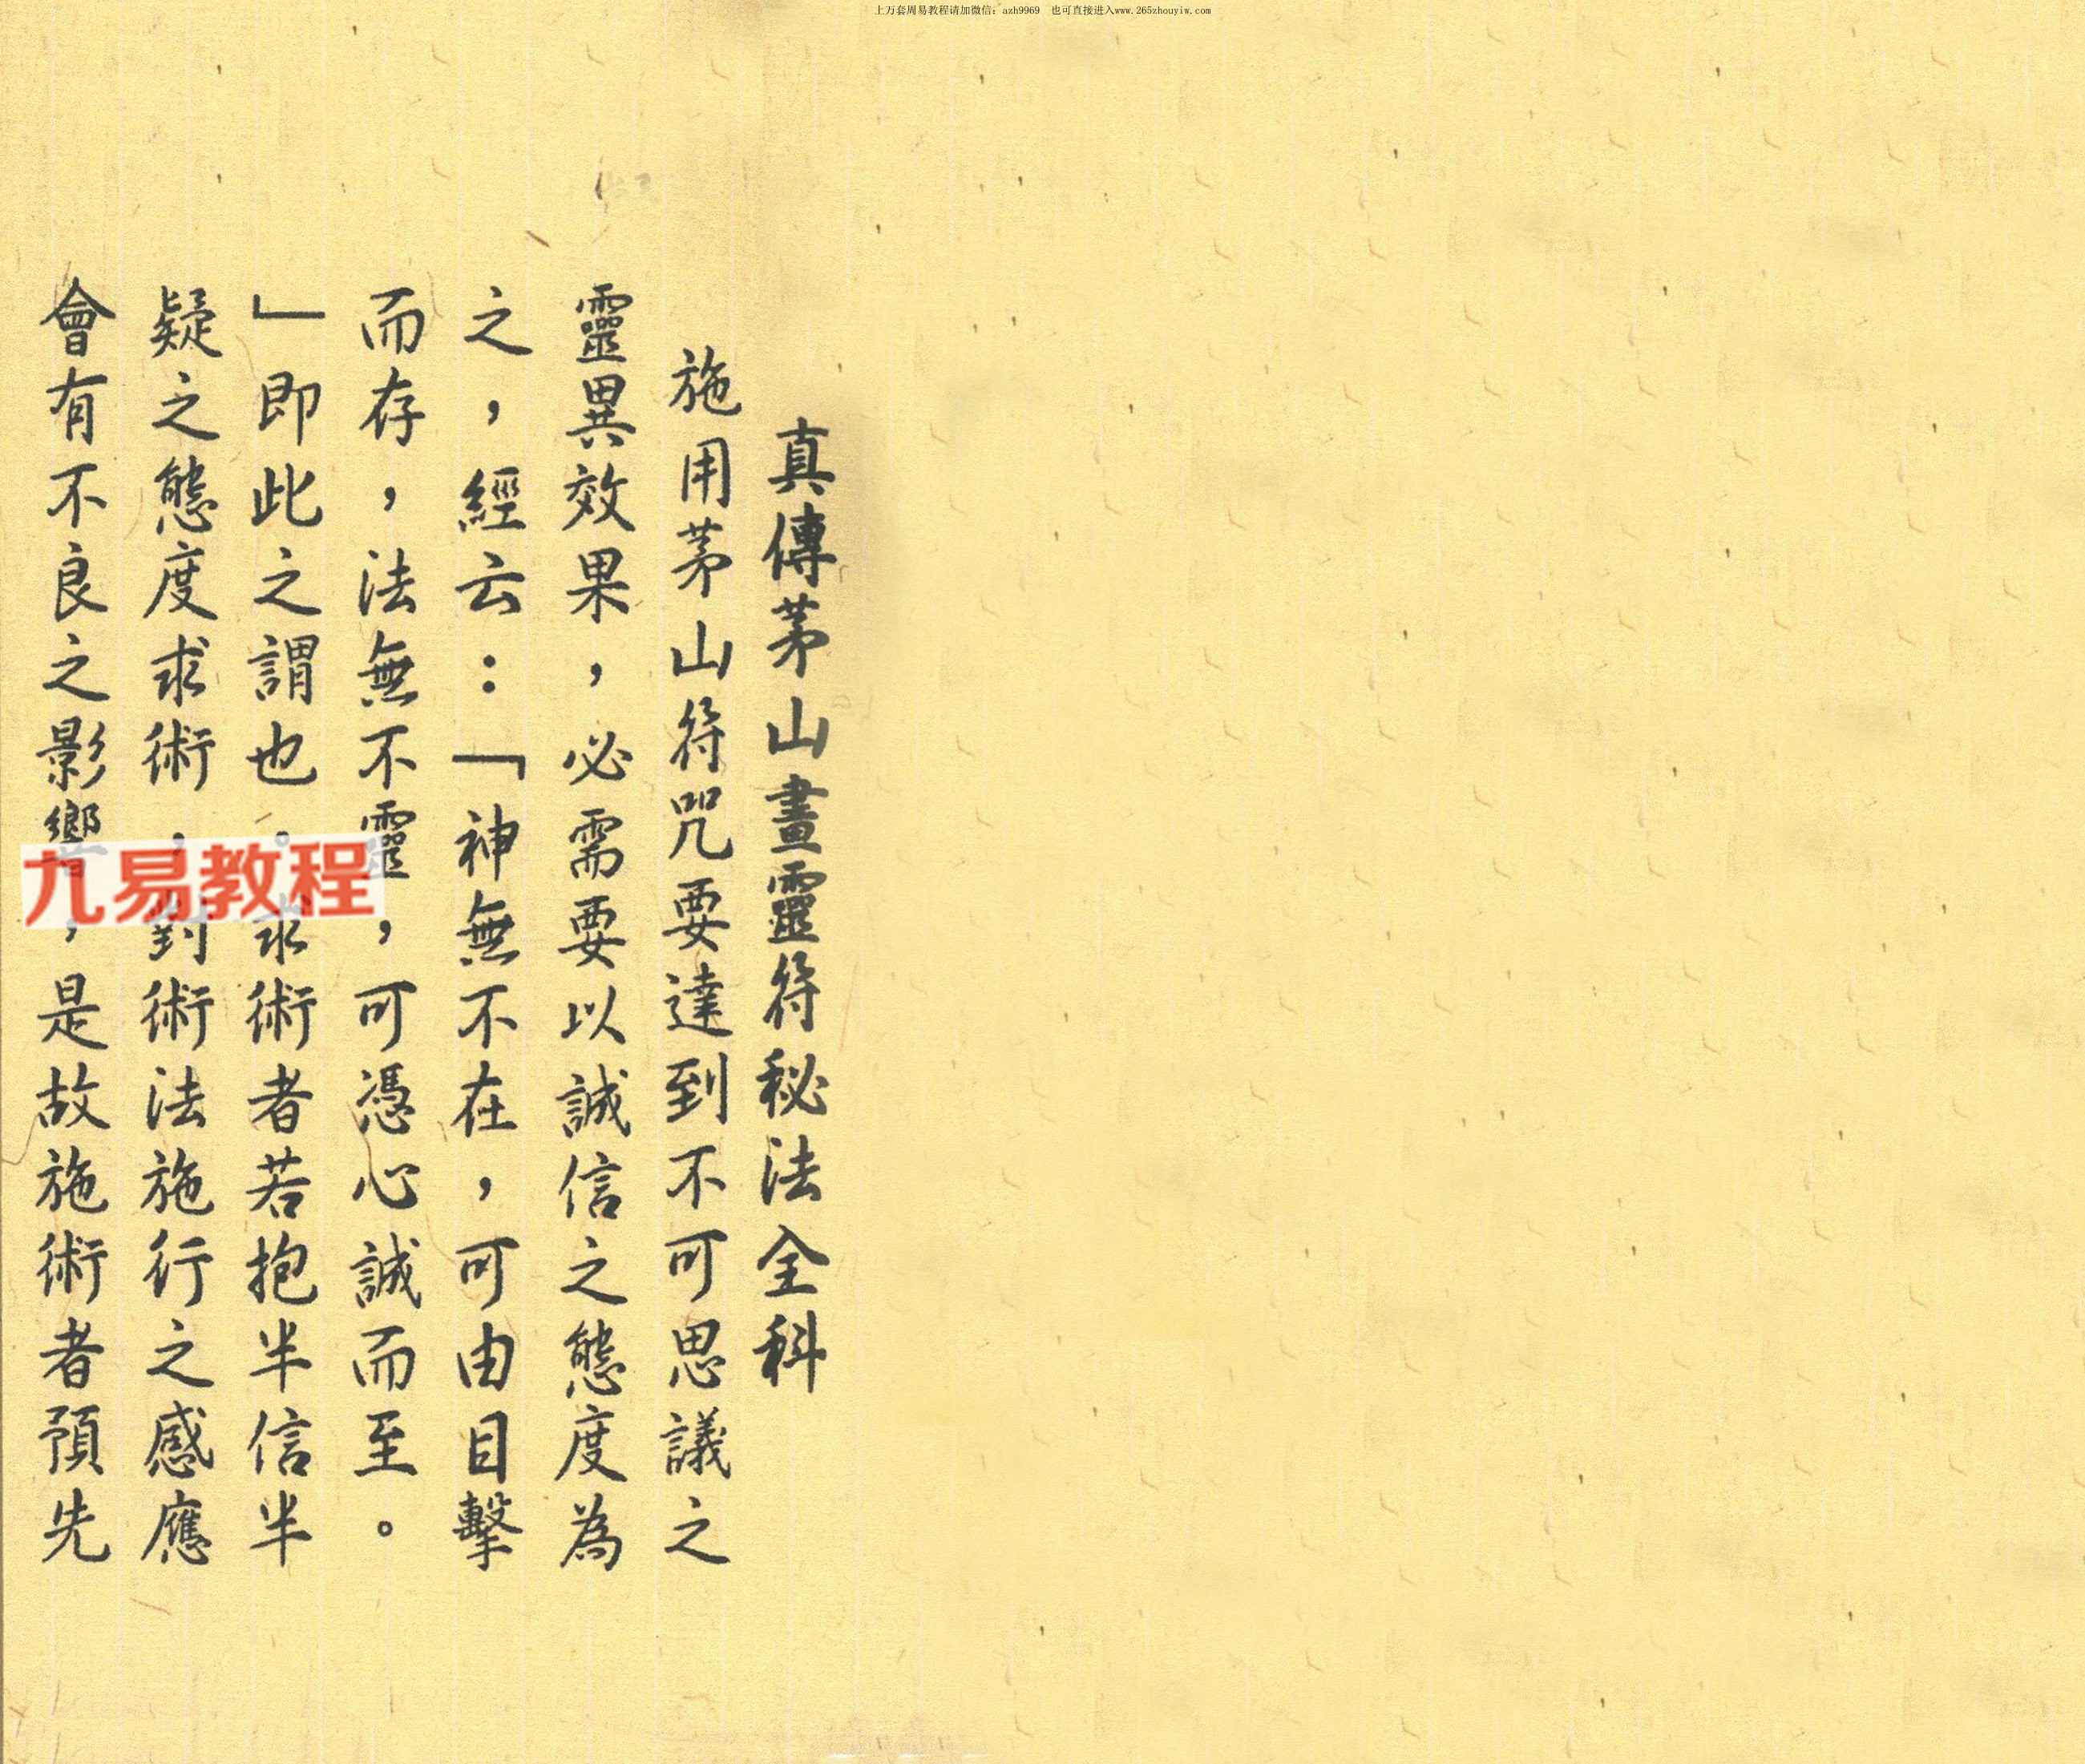 上万套周易教程请加微信：azh9969　也可直接进入www.265zhouyiw.com
真傳茅山畫靈符秘法全科
施用茅山符咒要達到不可思議之
靈異效果，必需要以誠信之態度為
之，經云：「神無不在，可由目擊
而存，法無不靈，可憑心誠而至。
」即此之謂也。求術者若抱半信半
疑之態度求術，對術法施行之感應
會有不良之影響，是故施術者預先
九易教程